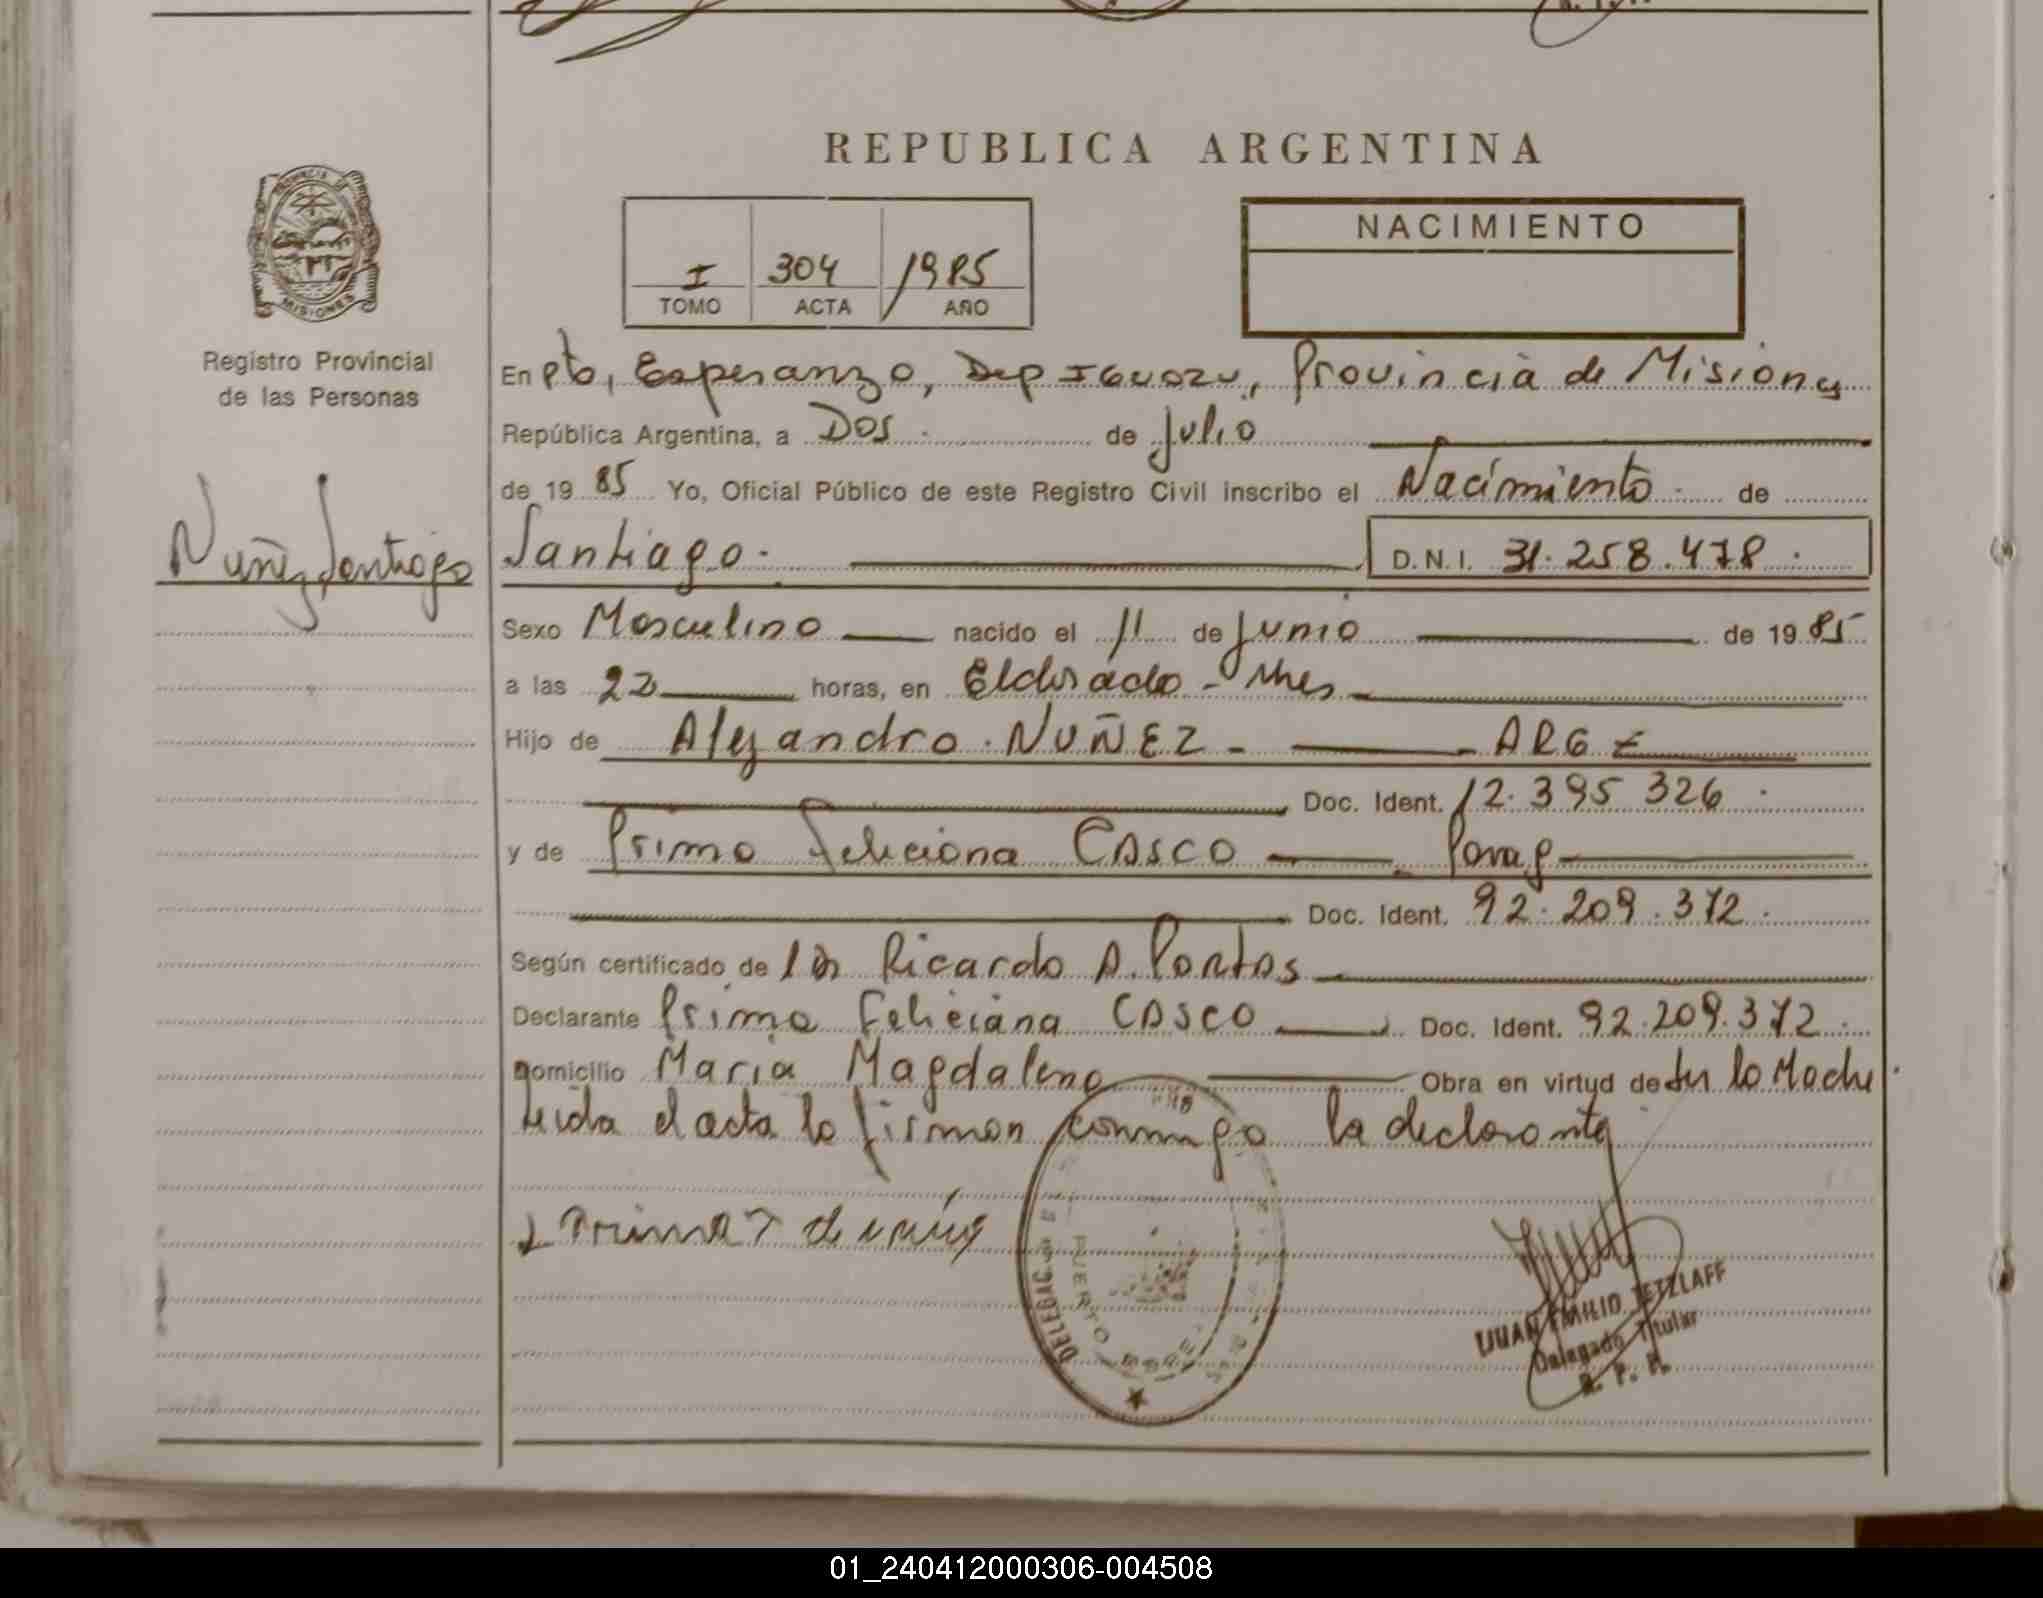 REPUBLICA ARGENTINA
PROVINCIA DE
MISIONES
Registro Provincial
de las Personas
I 304 1985
TOMO ACTA AÑO
NACIMIENTO
En Pto, Esperanza, Dep Iguazu, Provincia de Misiones
República Argentina, a Dos de Julio
de 19 85 Yo, Oficial Público de este Registro Civil inscribo el Nacimiento de
Nuñez Santiago
Santiago. D.N.I. 31.258.478.
Sexo Masculino nacido el 11 de Junio de 19 85
a las 22 horas, en Eldorado - Mnes
Hijo de Alejandro NUÑEZ - ARG
Doc. Ident. 12.395 326
y de Prima Feliciana CASCO Parag
Doc. Ident. 92.209.372.
Según certificado de Ricardo A. Portas
Declarante Prima Feliciana CASCO Doc. Ident. 92.209.372.
Domicilio Maria Magdalena Obra en virtud de la Madre
leida el acta la firman conmigo la declarante
DELEGAC
PUERTO
JUAN EMILIO TETZLAFF
Delegado Titular
R. P. P.
01_240412000306-004508